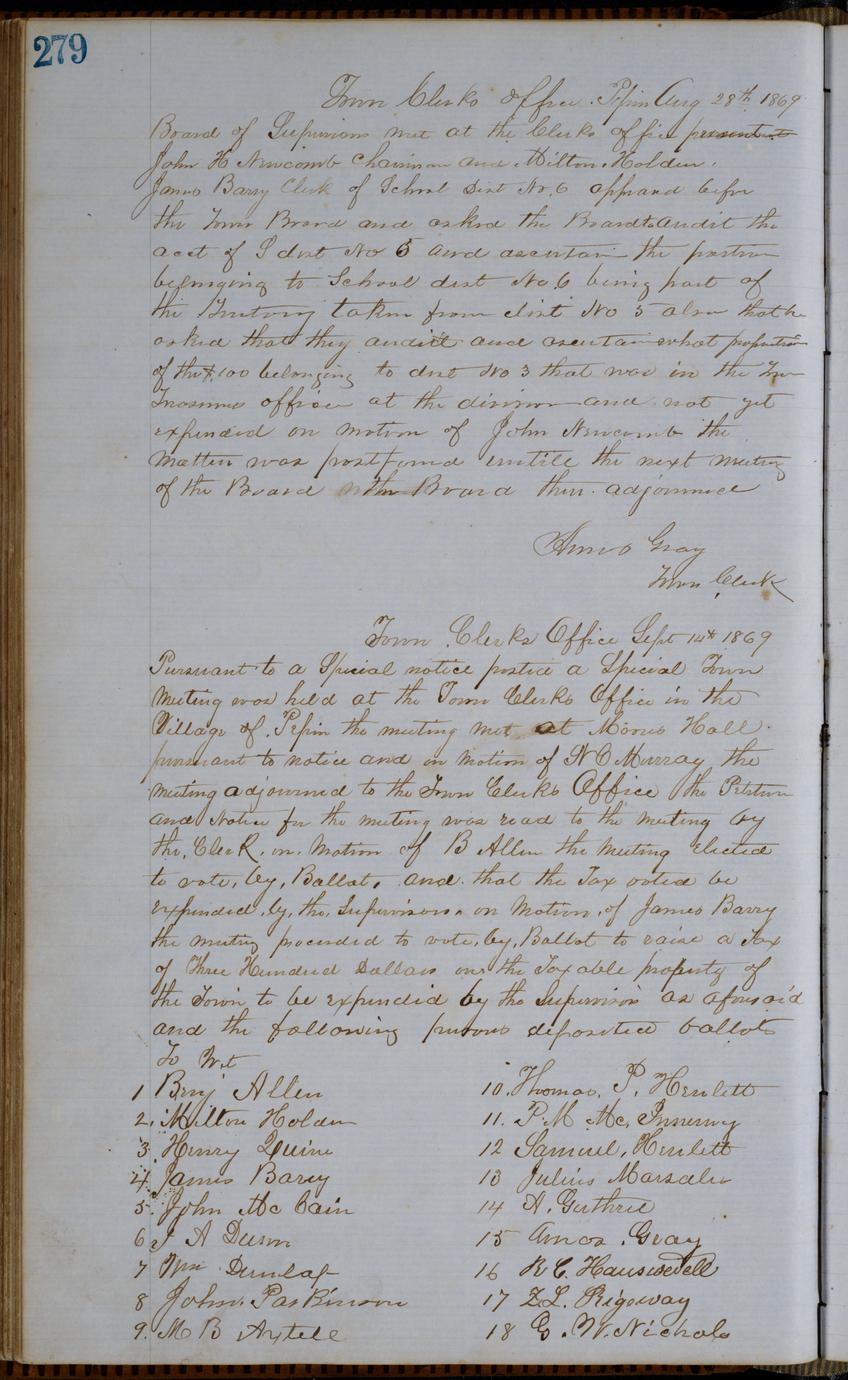 279
Town Clerks Office Pepin Aug 28th 1869
Board of Supervisors met at the Clerks office present
John H Newcomb Chairman and Milton Holden.
James Barry Clerk of School Dist No. 6 appeard before
the Town Board and asked the Board to audit the
acct of S dist No 5 and ascertain the portion
belonging to School dist No 6 being part of
the Teritory taken from dist No 5 also that he
asked that they audit and ascertain what proportion
of the $100 belonging to dist No 3 that was in the Town
Treasures office at the division and not yet
expended on motion of John Newcomb the
matter was postponed untill the next meeting
of the Board the Board then adjourned
Amos Gray
Town Clerk
Town Clerks Office Sept 14th 1869
Pursuant to a Special notice posted a Special Town
Meeting was held at the Town Clerks Office in the
Village of Pepin the meeting met at Hall
pursuant to notice and on motion of N C Murray the
meeting adjourned to the Town Clerks Office the Petition
and Notice for the meeting was read to the meeting by
the Clerk on Motion of B Allen the Meeting elected
to vote by Ballot, and that the Tax voted be
expended by the Supervisors on Motion of James Barry
the meeting proceeded to vote by Ballot to raise a Tax
of Three Hundred Dollars on the Taxable property of
the Town to be expended by the Supervisors as aforesaid
and the following persons deposited ballots
To Wit
1 Benj Allen
2. Milton Holden
3. Henry Quinn
4. James Barry
5. John Mc Cain
6 A
7 Wm Dunlap
8 John Parkinson
9. M B Axtell
10. Thomas. P. Hewlett
11. P. M Mc,
12 Samuel, Hewlett
13 Julius
14 A. Guthrie
15 Amos Gray
16 R C.
17 Z. L. Ridgway
18 G. W. Nichols